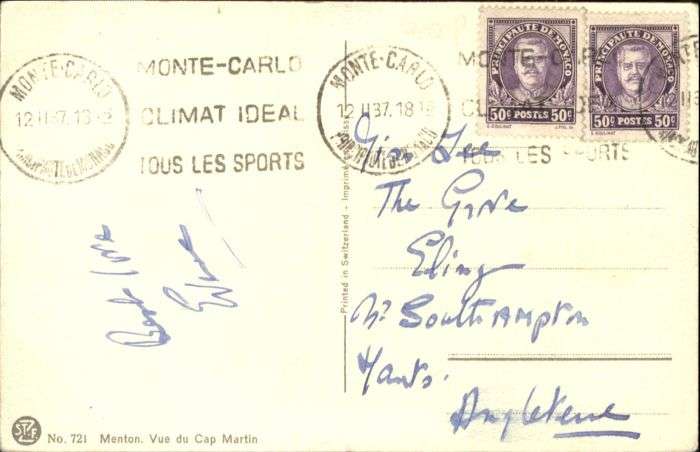 MONTE-CARLO
12 II 37. 18
PRINCIPAUTÉ DE MONACO
MONTE-CARLO
CLIMAT IDEAL
TOUS LES SPORTS
MONTE-CARLO
12 II 37. 18
PRINCIPAUTÉ DE MONACO
MONTE-CARLO
CLIMAT IDEAL
TOUS LES SPORTS
PRINCIPAUTE DE MONACO
50c POSTES 50c
PRINCIPAUTE DE MONACO
50c POSTES 50c
The Grove
Eling
Nr Southampton
Hants.
Angleterre
love
Printed in Switzerland - Imprimé
No. 721 Menton. Vue du Cap Martin